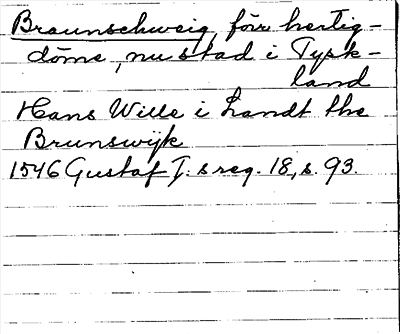 Braunschweig, förr hertig-
döme, nu stad i Tysk-
land
Hans Wille i Landt the
Brunswijk
1546 Gustaf I:s reg. 18, s. 93.